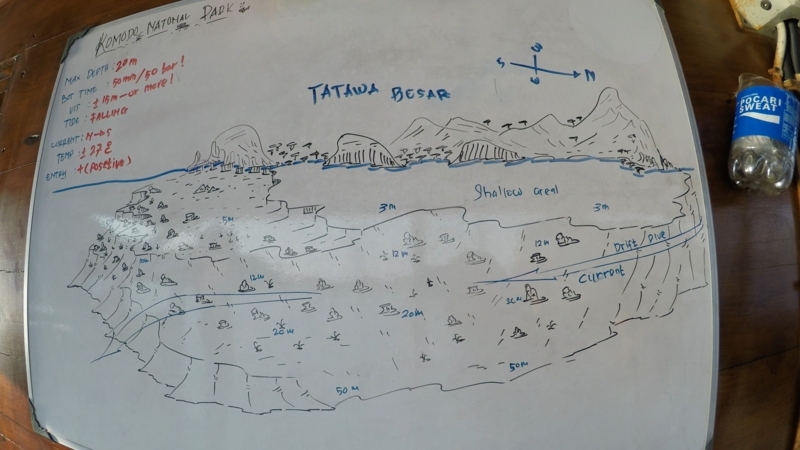 KOMODO NATIONAL PARK
MAX DEPTH : 20m
BOT TIME : 50mm/50 bar!
VIS : ±15m - or more!
TIDE : FALLING
CURRENT : N→S
TEMP : ± 27
ENTRY : + (POSETIVE)
TATAWA BESAR
S N
Shallow areal
3m
3m
5m
12m
12m
Drift Dive
Current
12m
20m
20m
50m
50m
POCARI
SWEAT